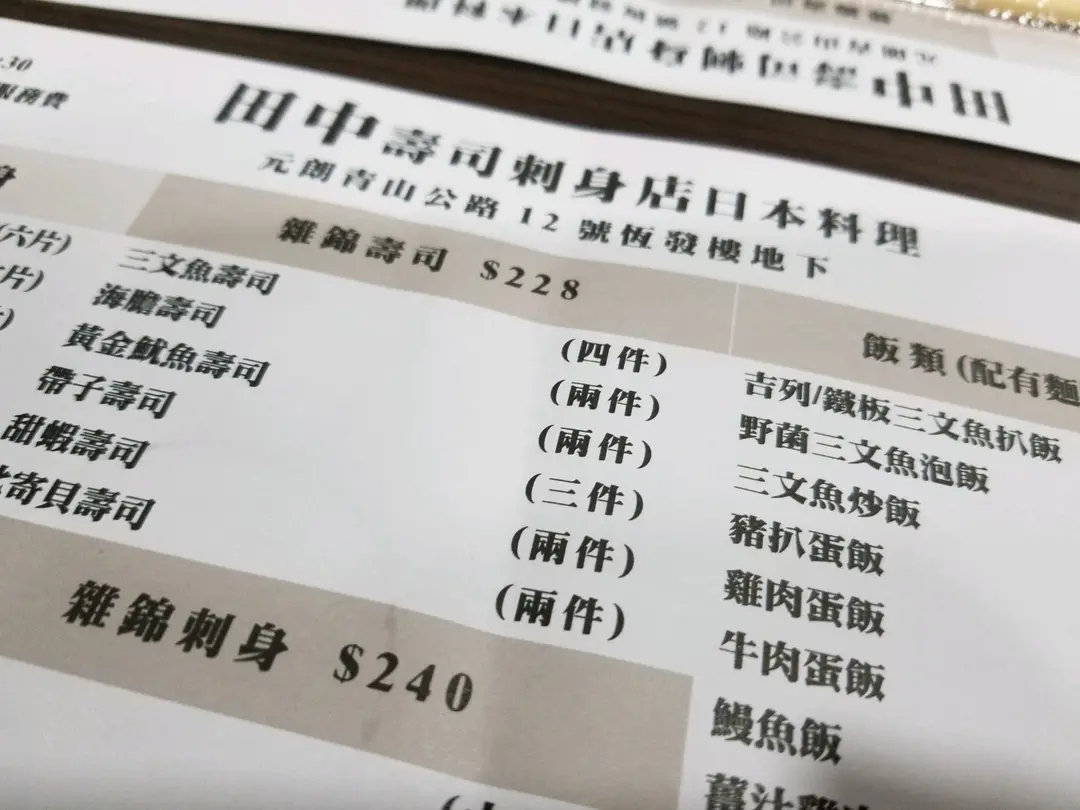 :30
服務費
田中壽司刺身店日本料理
元朗青山公路 12 號恆發樓地下
身
(六片)
片)
雜錦壽司 $228
三文魚壽司 (四件)
海膽壽司 (兩件)
黃金魷魚壽司 (兩件)
帶子壽司 (三件)
甜蝦壽司 (兩件)
寄貝壽司 (兩件)
雜錦刺身 $240
飯類 (配有麵
吉列/鐵板三文魚扒飯
野菌三文魚泡飯
三文魚炒飯
豬扒蛋飯
雞肉蛋飯
牛肉蛋飯
鰻魚飯
薑汁雞
田中壽司刺身店日本料理